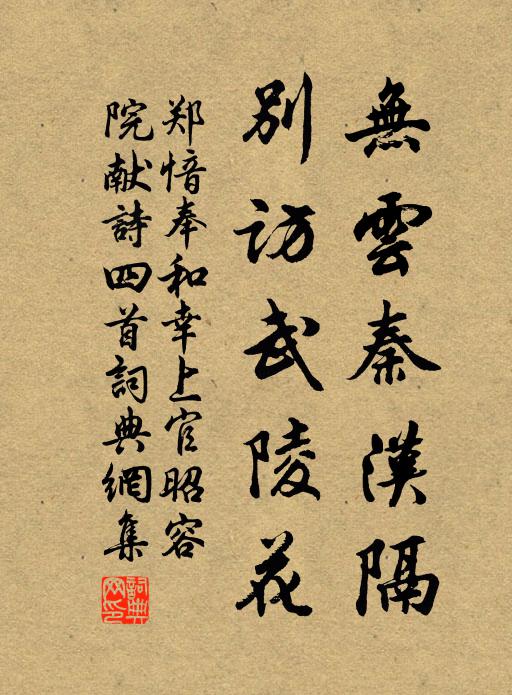 無雲秦漢隔
別訪武陵花
郑愔奉和幸上官昭容
院献詩四首詞典網集
詞典网印